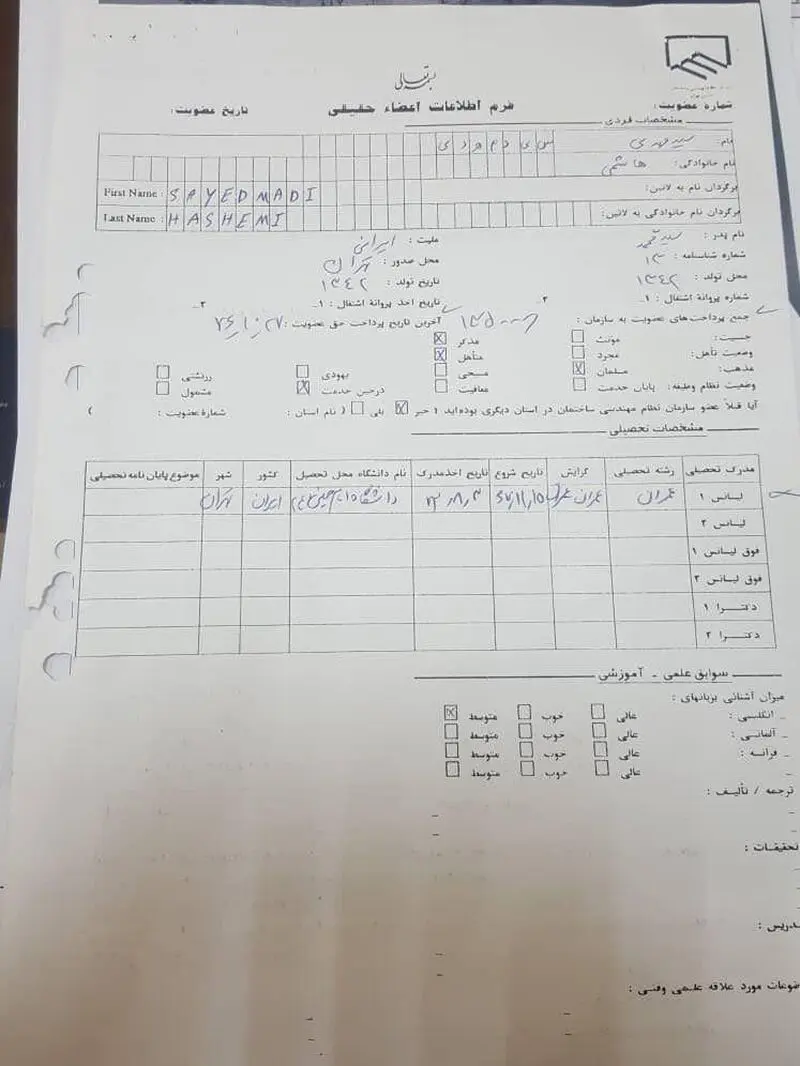 بسمه تعالی
فرم اطلاعات اعضاء حقیقی
شماره عضویت :
تاریخ عضویت :
مشخصات فردی
نام : سید مهدی
نام خانوادگی : هاشمی
برگردان نام به لاتین :
First Name : SAYED MADI
برگردان نام خانوادگی به لاتین :
Last Name : HASHEMI
نام پدر : سید محمد
ملیت : ایرانی
شماره شناسنامه : ۱۳
محل صدور : تهران
محل تولد : ۱۳۴۲
تاریخ تولد : ۱۳۴۲
شماره پروانه اشتغال : ۱_ ۲_
تاریخ اخذ پروانه اشتغال : ۱_ ۲_
جمع پرداخت‌های عضویت به سازمان :
آخرین تاریخ پرداخت حق عضویت :
جنسیت : مونث مذکر
وضعیت تأهل : مجرد متأهل
مذهب : مسلمان مسیحی یهودی زرتشتی
وضعیت نظام وظیفه : پایان خدمت معافیت درحین خدمت مشمول
آیا قبلاً عضو سازمان نظام مهندسی ساختمان در استان دیگری بوده‌اید ؟ خیر بلی ( نام استان : شماره عضویت : )
مشخصات تحصیلی
مدرک تحصیلی رشته تحصیلی گرایش تاریخ شروع تاریخ اخذمدرک نام دانشگاه محل تحصیل کشور شهر موضوع پایان نامه تحصیلی
لیسانس ۱ عمران عمران ۶۷,۱۱,۱۵ دانشگاه امام حسین ایران تهران
لیسانس ۲
فوق لیسانس ۱
فوق لیسانس ۲
دکتــرا ۱
دکتــرا ۲
سوابق علمی - آموزشی
میزان آشنائی بزبانهای :
_ انگلیسی : عالی خوب متوسط
_ آلمانی : عالی خوب متوسط
_ فرانسه : عالی خوب متوسط
_ عالی خوب متوسط
ترجمه / تألیف :
تحقیقات :
دریس :
ضوعات مورد علاقه علمی وفنی :